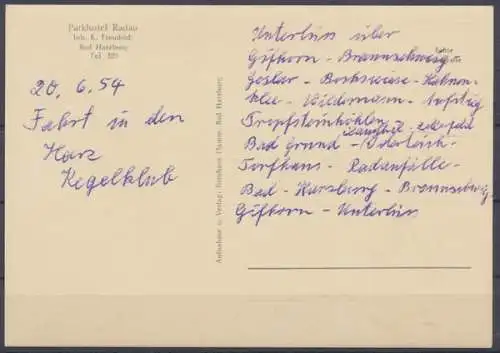 Parkhotel Radau
Inh. K. Freudenf.
Bad Harzburg
Tel. 321
20. 6. 54
Fahrt in den
Harz
Kegelklub
Aufnahme u. Verlag: Bad Harzburg
Unterlüss über
Gifhorn - Braunschweig
Goslar - Bockswiese - Hahnen-
klee - Wildemann - Aufstieg
Tropfsteinhöhlen
Clausthal-Zellerfeld
Bad Grund - Oderteich -
Torfhaus - Radaufälle -
Bad - Harzburg - Braunschweig
Gifhorn - Unterlüss